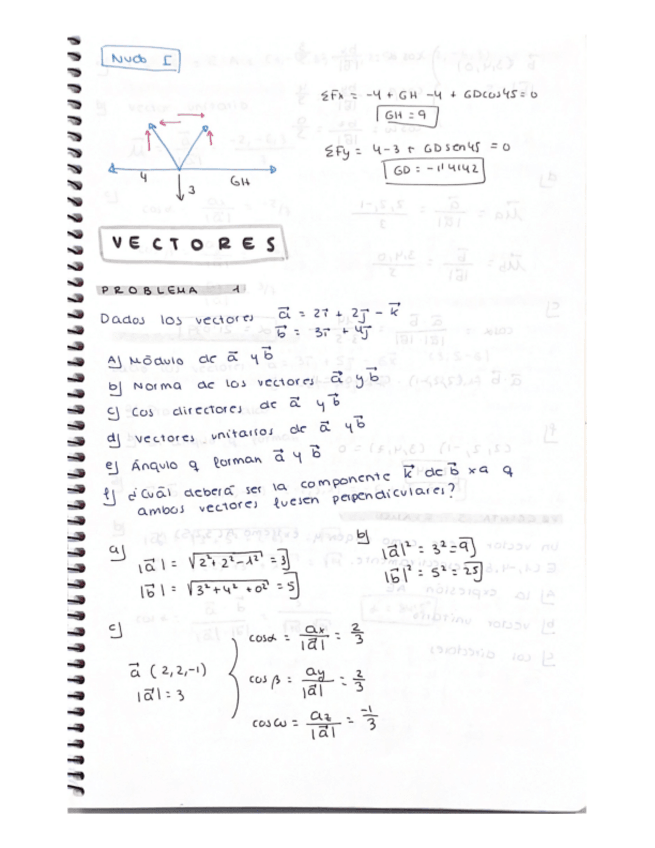 Nudo I
ΣFx = -4 + GH -4 + GDcos45 = 0
GH = 9
ΣFy = 4-3 + GDsen45 = 0
GD = -1'4142
4
GH
3
VECTORES
PROBLEMA 1
Dados los vectores a⃗ = 2i⃗ + 2j⃗ - k⃗
b⃗ = 3i⃗ + 4j⃗
A) Módulo de a⃗ y b⃗
b) Norma de los vectores a⃗ y b⃗
c) Cos directores de a⃗ y b⃗
d) Vectores unitarios de a⃗ y b⃗
e) Ángulo q forman a⃗ y b⃗
f) ¿Cuál deberá ser la componente k⃗ de b⃗ xa q
ambos vectores fuesen perpendiculares?
a)
|a⃗| = √2²+2²-1² = 3
|b⃗| = √3²+4²+0² = 5
b)
|a⃗|² = 3² = 9
|b⃗|² = 5² = 25
c)
a⃗ (2,2,-1)
|a⃗| = 3
cosα = ax/|a⃗| = 2/3
cosβ = ay/|a⃗| = 2/3
cosω = az/|a⃗| = -1/3